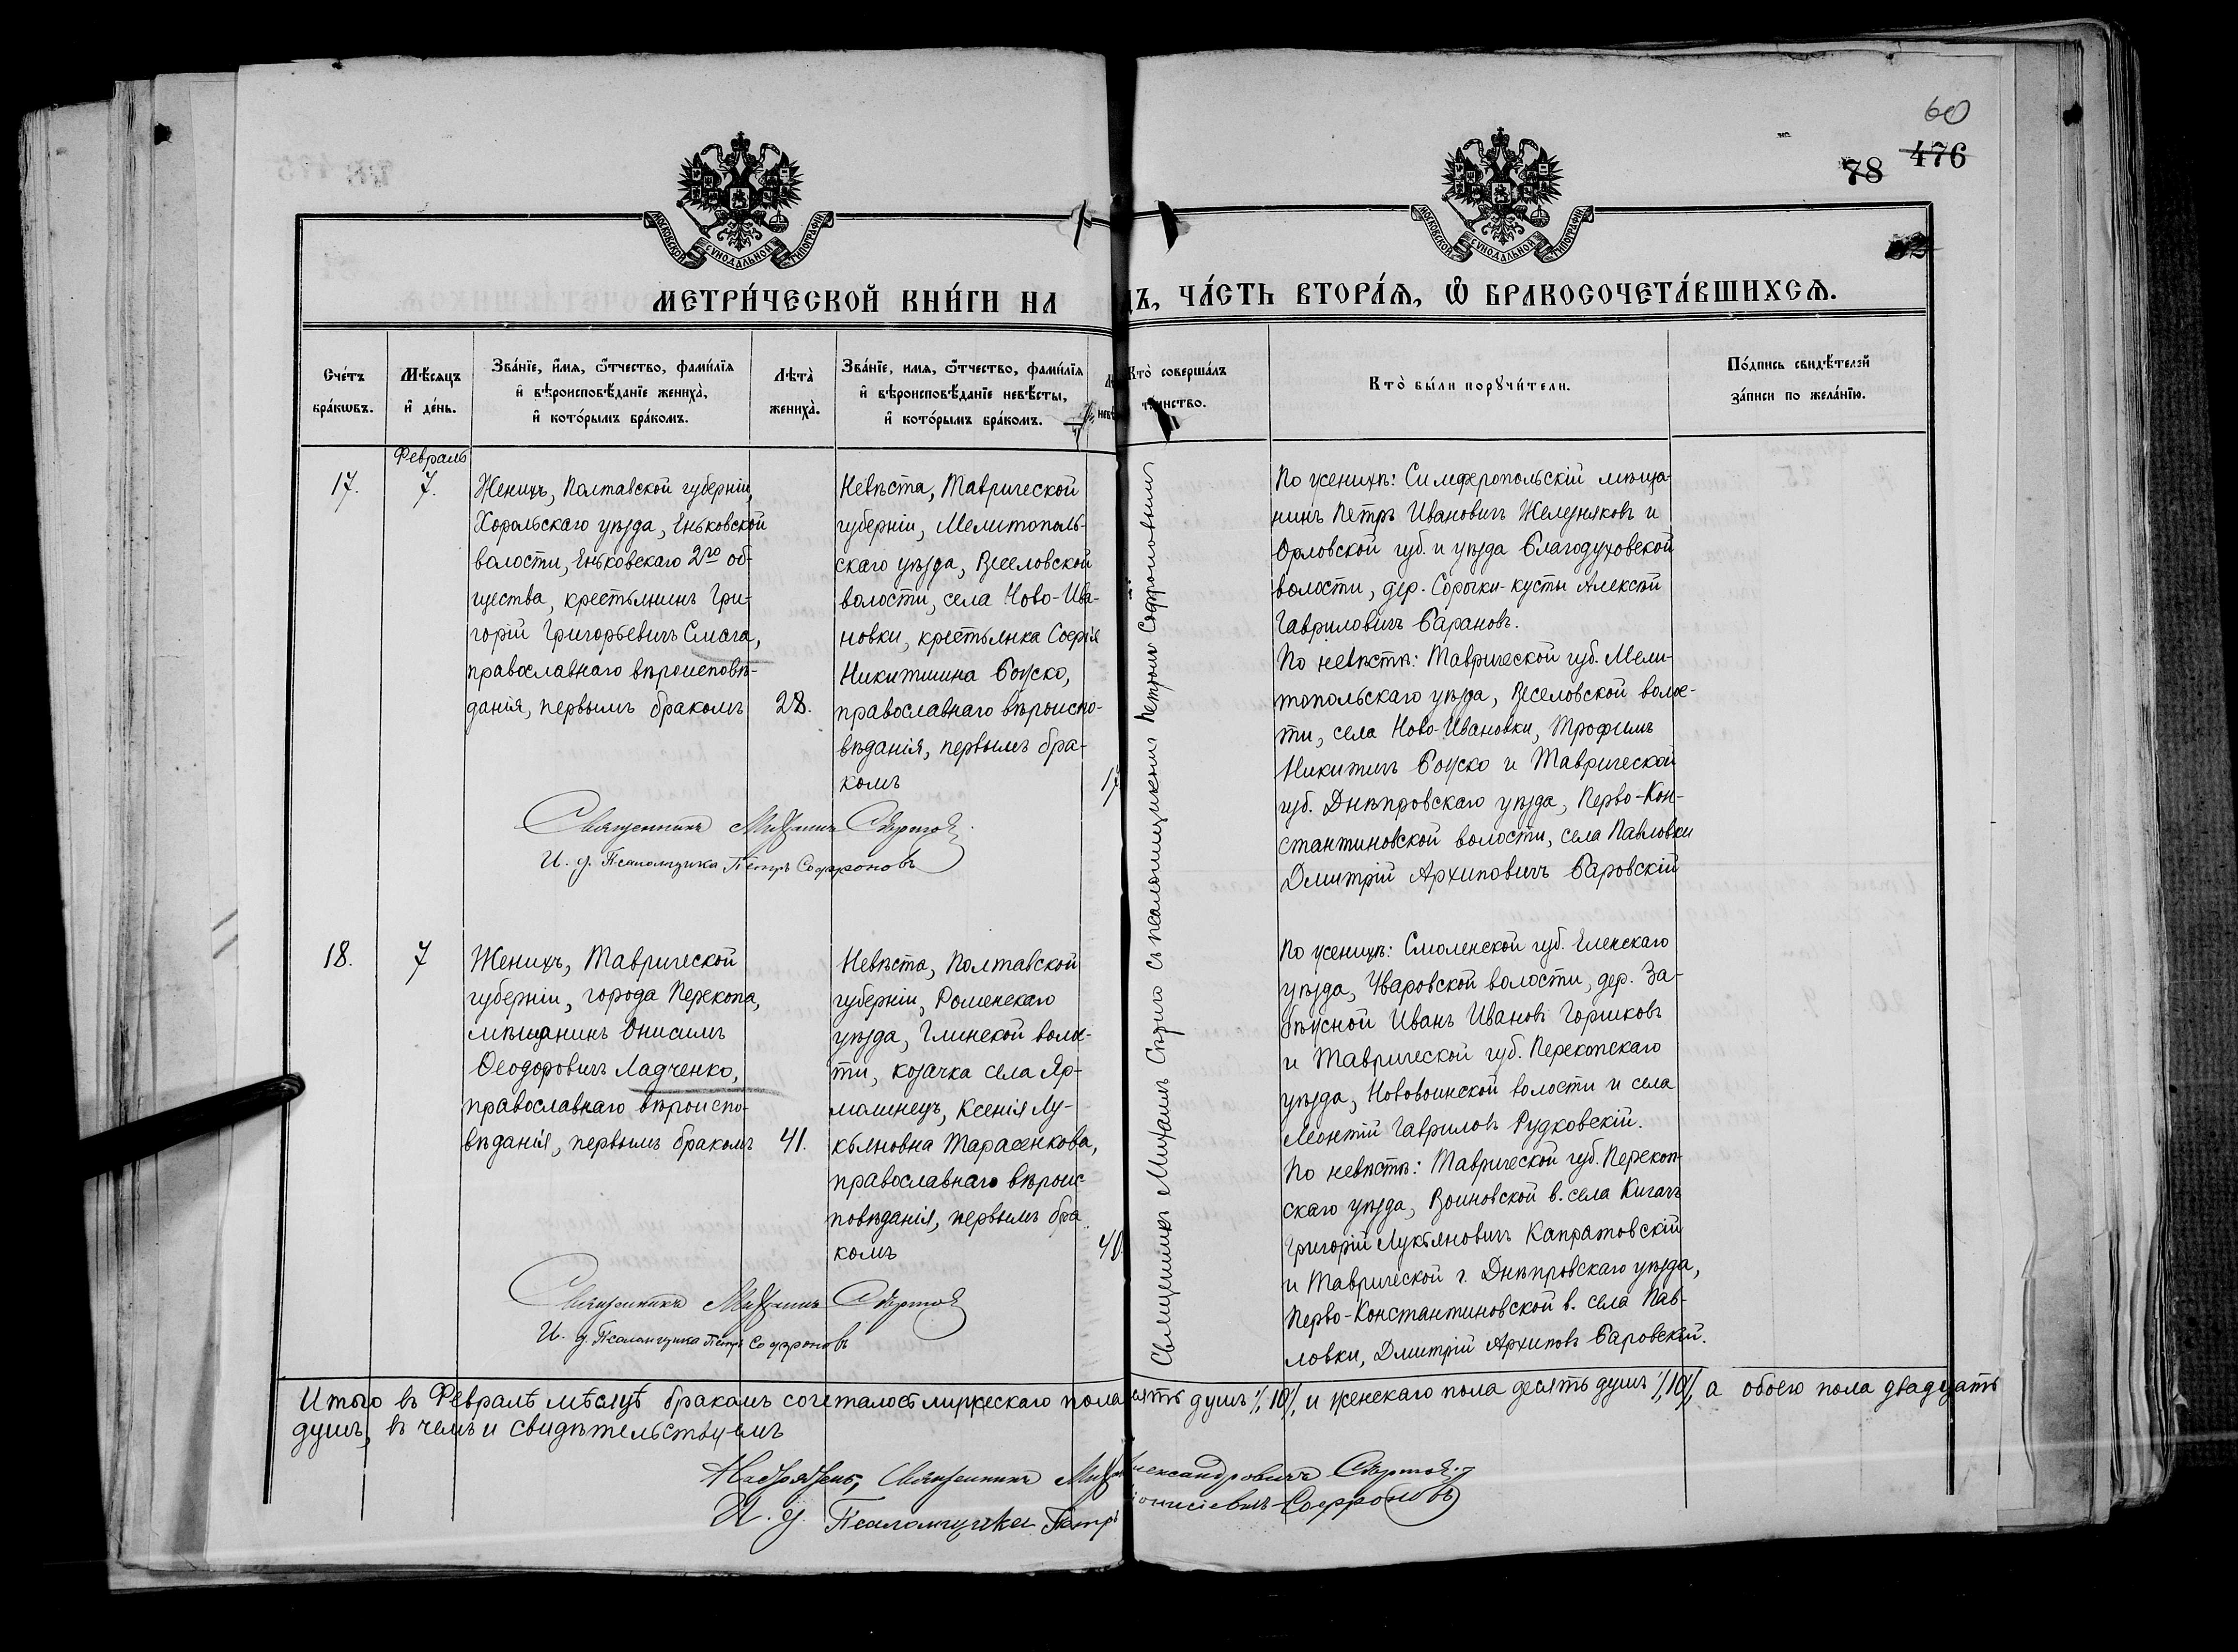 60
78 476
МОСКОВСКОЙ СУНОДАЛЬНОЙ ТИПОГРАФІИ
МОСКОВСКОЙ СУНОДАЛЬНОЙ ТИПОГРАФІИ
МЕТРИ́ЧЕСКОЙ КНИ́ГИ НА
ДЪ, ЧА́СТЬ ВТОРА́Ѧ, Ѽ БРАКОСОЧЕТА́ВШИХСѦ.
Сче́тъ
бра́кѡвъ.
Мѣ́сяцъ
и҆ де́нь.
Зва́нїе, и҆́мя, ѻ҆́тчество, фами́лїя
и҆ вѣроисповѣ́данїе жениха̀,
и҆ кото́рымъ бра́комъ.
Лѣта̀
жениха̀.
Зва́нїе, и҆мя, ѻ҆́тчество, фами́лїя
и҆ вѣроисповѣ́данїе невѣ́сты,
и҆ кото́рымъ бра́комъ.
Кто̀ соверша́лъ
таинство.
Кто̀ бы́ли порꙋчи́тели.
По́дпись свидѣ́телей
за́писи по жела́нїю.
Февраль
17.
7.
Женихъ, Полтавской губерніи,
Хорольскаго уѣзда, Еньковской
волости, Еньковскаго 2го об-
щества, крестьянинъ Гри-
горій Григорьевичъ Смага,
православнаго вѣроисповѣ-
данія, первымъ бракомъ
28.
Невѣста, Таврической
губерніи, Мелитополь-
скаго уѣзда, Веселовской
волости, села Ново-Ива-
новки, крестьянка Софія
Никитична Боуско,
православнаго вѣроиспо-
вѣданія, первымъ бра-
комъ
17
Священникъ Михаилъ
И. д. Псаломщика Петръ Софроновъ
Священникъ Михаилъ съ псаломщикомъ Петромъ Софроновымъ
По женихѣ: Симферопольскій мѣща-
нинъ Петръ Ивановичъ Желѣзняковъ и
Орловской губ. и уѣзда Благодуховской
волости, дер. Сорочьи-кусты Алексѣй
Гавриловичъ Барановъ.
По невѣстѣ: Таврической губ. Мели-
топольскаго уѣзда, Веселовской волос-
ти, села Ново-Ивановки, Трофимъ
Никитичъ Боуско и Таврической
губ. Днѣпровскаго уѣзда, Перво-Кон-
стантиновской волости, села Павловки
Дмитрій Архиповичъ Баровскій
18.
7
Женихъ, Таврической
губерніи, города Перекопа,
мѣщанинъ Онисимъ
Ѳеодоровичъ Ладченко,
православнаго вѣроиспо-
вѣданія, первымъ бракомъ
41.
Невѣста, Полтавской
губерніи, Роменскаго
уѣзда, Глинской волос-
ти, козачка села Яр-
молинецъ, Ксенія Лу-
кьяновна Тарасенкова,
православнаго вѣроис-
повѣданія, первымъ бра-
комъ
40.
Священникъ Михаилъ
И. д. Псаломщика Петръ Софроновъ
По женихѣ: Смоленской губ. Еленскаго
уѣзда, Уваровской волости, дер. За-
Иванъ Ивановъ Горшковъ
и Таврической губ. Перекопскаго
уѣзда, Нововоинской волости и села
Леонтій Гавриловъ Рудковскій.
По невѣстѣ: Таврической губ. Перекоп-
скаго уѣзда, Воиновской в. села Кигачъ
Григорій Лукьяновичъ Капратовскій
и Таврической г. Днѣпровскаго уѣзда,
Перво-Константиновской в. села Пав-
ловки, Дмитрій Архиповъ Баровскій.
Итого въ Февралѣ мѣсяцѣ бракомъ сочеталось мужескаго пола десять душъ /10/, и женскаго пола десять душъ /10/, а обоего пола двадцать
душъ, въ чемъ и свидѣтельствуемъ
Священникъ Михаилъ Александровичъ
И. д. Псаломщика Петръ Діонисіевичъ Софроновъ